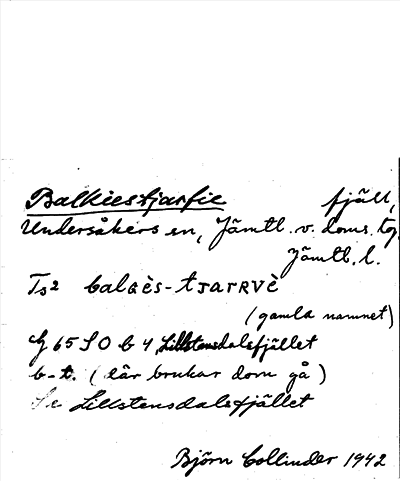 Balkiestjarfie fjäll,
Undersåkers sn, Jämtl. v. doms. tg.
Jämtl. l.
Ts2 balGès-tJARRVè
(gamla namnet)
G 65 SO b 4 Lillstensdalsfjället
b-t. (där brukar dom gå)
Se Lillstensdalsfjället
Björn Collinder 1942